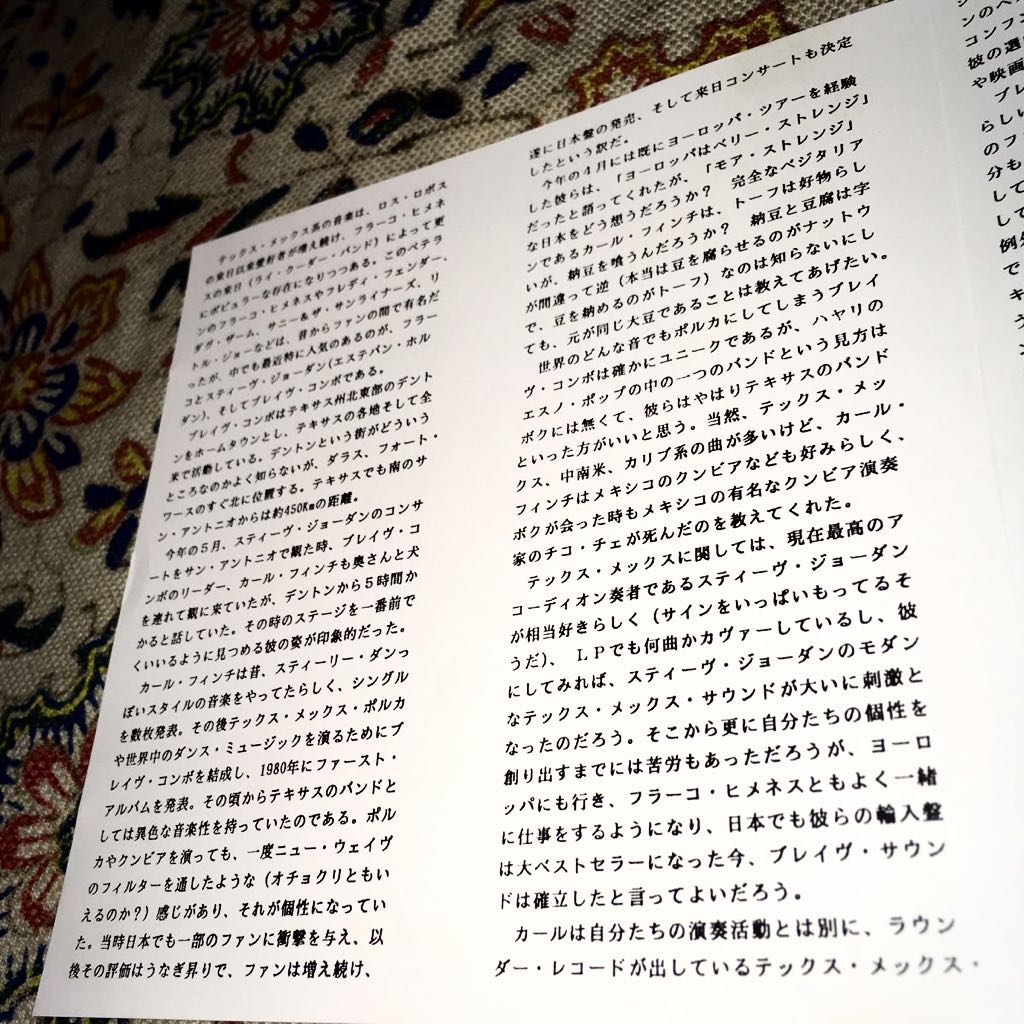 テックス・メックス系の音楽は、ロス・ロボス
の来日以来愛好者が増え続け、フラーコ・ヒメネ
スの来日（ライ・クーダー・バンド）によって更
にポピュラーな存在になりつつある。このベテラ
ンのフラーコ・ヒメネスやフレディ・フェンダー、
ダグ・ザーム、サニー＆ザ・サンライナーズ、リ
トル・ジョーなどは、昔からファンの間で有名だ
ったが、中でも最近特に人気のあるのが、フラー
コとスティーヴ・ジョーダン（エステバン・ホル
ダン）、そしてブレイヴ・コンボである。
ブレイヴ・コンボはテキサス州北東部のデント
ンをホームタウンとし、テキサスの各地そして全
米で活動している。デントンという街がどういう
ところなのかよく知らないが、ダラス、フォート・
ワースのすぐ北に位置する。テキサスでも南のサ
ン・アントニオからは約450Kmの距離。
今年の５月、スティーヴ・ジョーダンのコンサ
ートをサン・アントニオで観た時、ブレイヴ・コ
ンボのリーダー、カール・フィンチも奥さんと犬
を連れて観に来ていたが、デントンから５時間か
かると話していた。その時のステージを一番前で
くいいるように見つめる彼の姿が印象的だった。
カール・フィンチは昔、スティーリー・ダンっ
ぽいスタイルの音楽をやってたらしく、シングル
を数枚発表。その後テックス・メックス・ポルカ
や世界中のダンス・ミュージックを演るためにブ
レイヴ・コンボを結成し、1980年にファースト・
アルバムを発表。その頃からテキサスのバンドと
しては異色な音楽性を持っていたのである。ポル
カやクンビアを演っても、一度ニュー・ウェイヴ
のフィルターを通したような（オチョクリともい
えるのか？）感じがあり、それが個性になってい
た。当時日本でも一部のファンに衝撃を与え、以
後その評価はうなぎ昇りで、ファンは増え続け、
遂に日本盤の発売、そして来日コンサートも決定
したという訳だ。
今年の４月には既にヨーロッパ・ツアーを経験
した彼らは、「ヨーロッパはベリー・ストレンジ」
だったと語ってくれたが、「モア・ストレンジ」
な日本をどう想うだろうか？　完全なベジタリア
ンであるカール・フィンチは、トーフは好物らし
いが、納豆を喰うんだろうか？　納豆と豆腐は字
が間違って逆（本当は豆を腐らせるのがナットウ
で、豆を納めるのがトーフ）なのは知らないにし
ても、元が同じ大豆であることは教えてあげたい。
世界のどんな音でもポルカにしてしまうブレイ
ヴ・コンボは確かにユニークであるが、ハヤリの
エスノ・ポップの中の一つのバンドという見方は
ボクには無くて、彼らはやはりテキサスのバンド
といった方がいいと思う。当然、テックス・メッ
クス、中南米、カリブ系の曲が多いけど、カール・
フィンチはメキシコのクンビアなども好みらしく、
ボクが会った時もメキシコの有名なクンビア演奏
家のチコ・チェが死んだのを教えてくれた。
テックス・メックスに関しては、現在最高のア
コーディオン奏者であるスティーヴ・ジョーダン
が相当好きらしく（サインをいっぱいもってるそ
うだ）、ＬＰでも何曲かカヴァーしているし、彼
にしてみれば、スティーヴ・ジョーダンのモダン
なテックス・メックス・サウンドが大いに刺激と
なったのだろう。そこから更に自分たちの個性を
創り出すまでには苦労もあっただろうが、ヨーロ
ッパにも行き、フラーコ・ヒメネスともよく一緒
に仕事をするようになり、日本でも彼らの輸入盤
は大ベストセラーになった今、ブレイヴ・サウン
ドは確立したと言ってよいだろう。
カールは自分たちの演奏活動とは別に、ラウン
ダー・レコードが出しているテックス・メックス・
ンのベ
コンフ
彼の選
や映画
ブレ
らしい
のフ
分も
して
して
例ダ
で